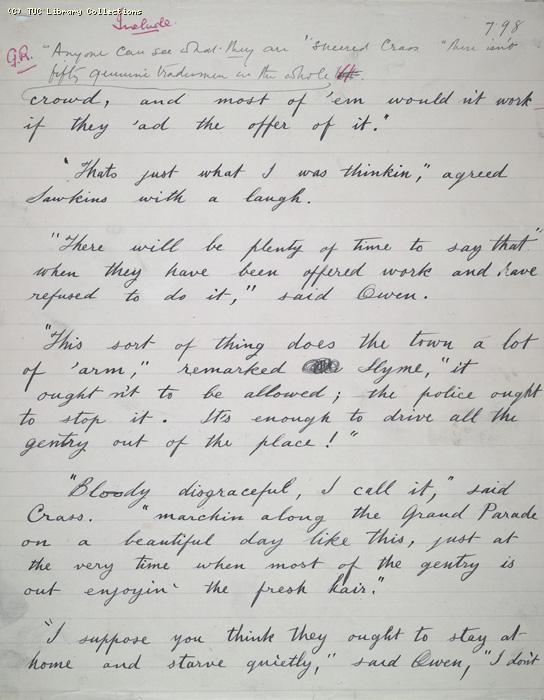 (C) TUC Library Collections
Include. 798
G.R. "Anyone can see what they are" sneered Crass "There isn't
fifty genuine tradesmen in the whole
crowd, and most of 'em would n't work
if they 'ad the offer of it."
"Thats just what I was thinkin'," agreed
Sawkins with a laugh.
"There will be plenty of time to say that"
when they have been offered work and have
refused to do it," said Owen.
"This sort of thing does the town a lot
of 'arm," remarked Slyme, "it
ought n't to be allowed; the police ought
to stop it. It's enough to drive all the
gentry out of the place!"
"Bloody disgraceful, I call it," said
Crass. "marchin along the Grand Parade
on a beautiful day like this, just at
the very time when most of the gentry is
out enjoyin' the fresh hair."
"I suppose you think they ought to stay at
home and starve quietly," said Owen, "I don't